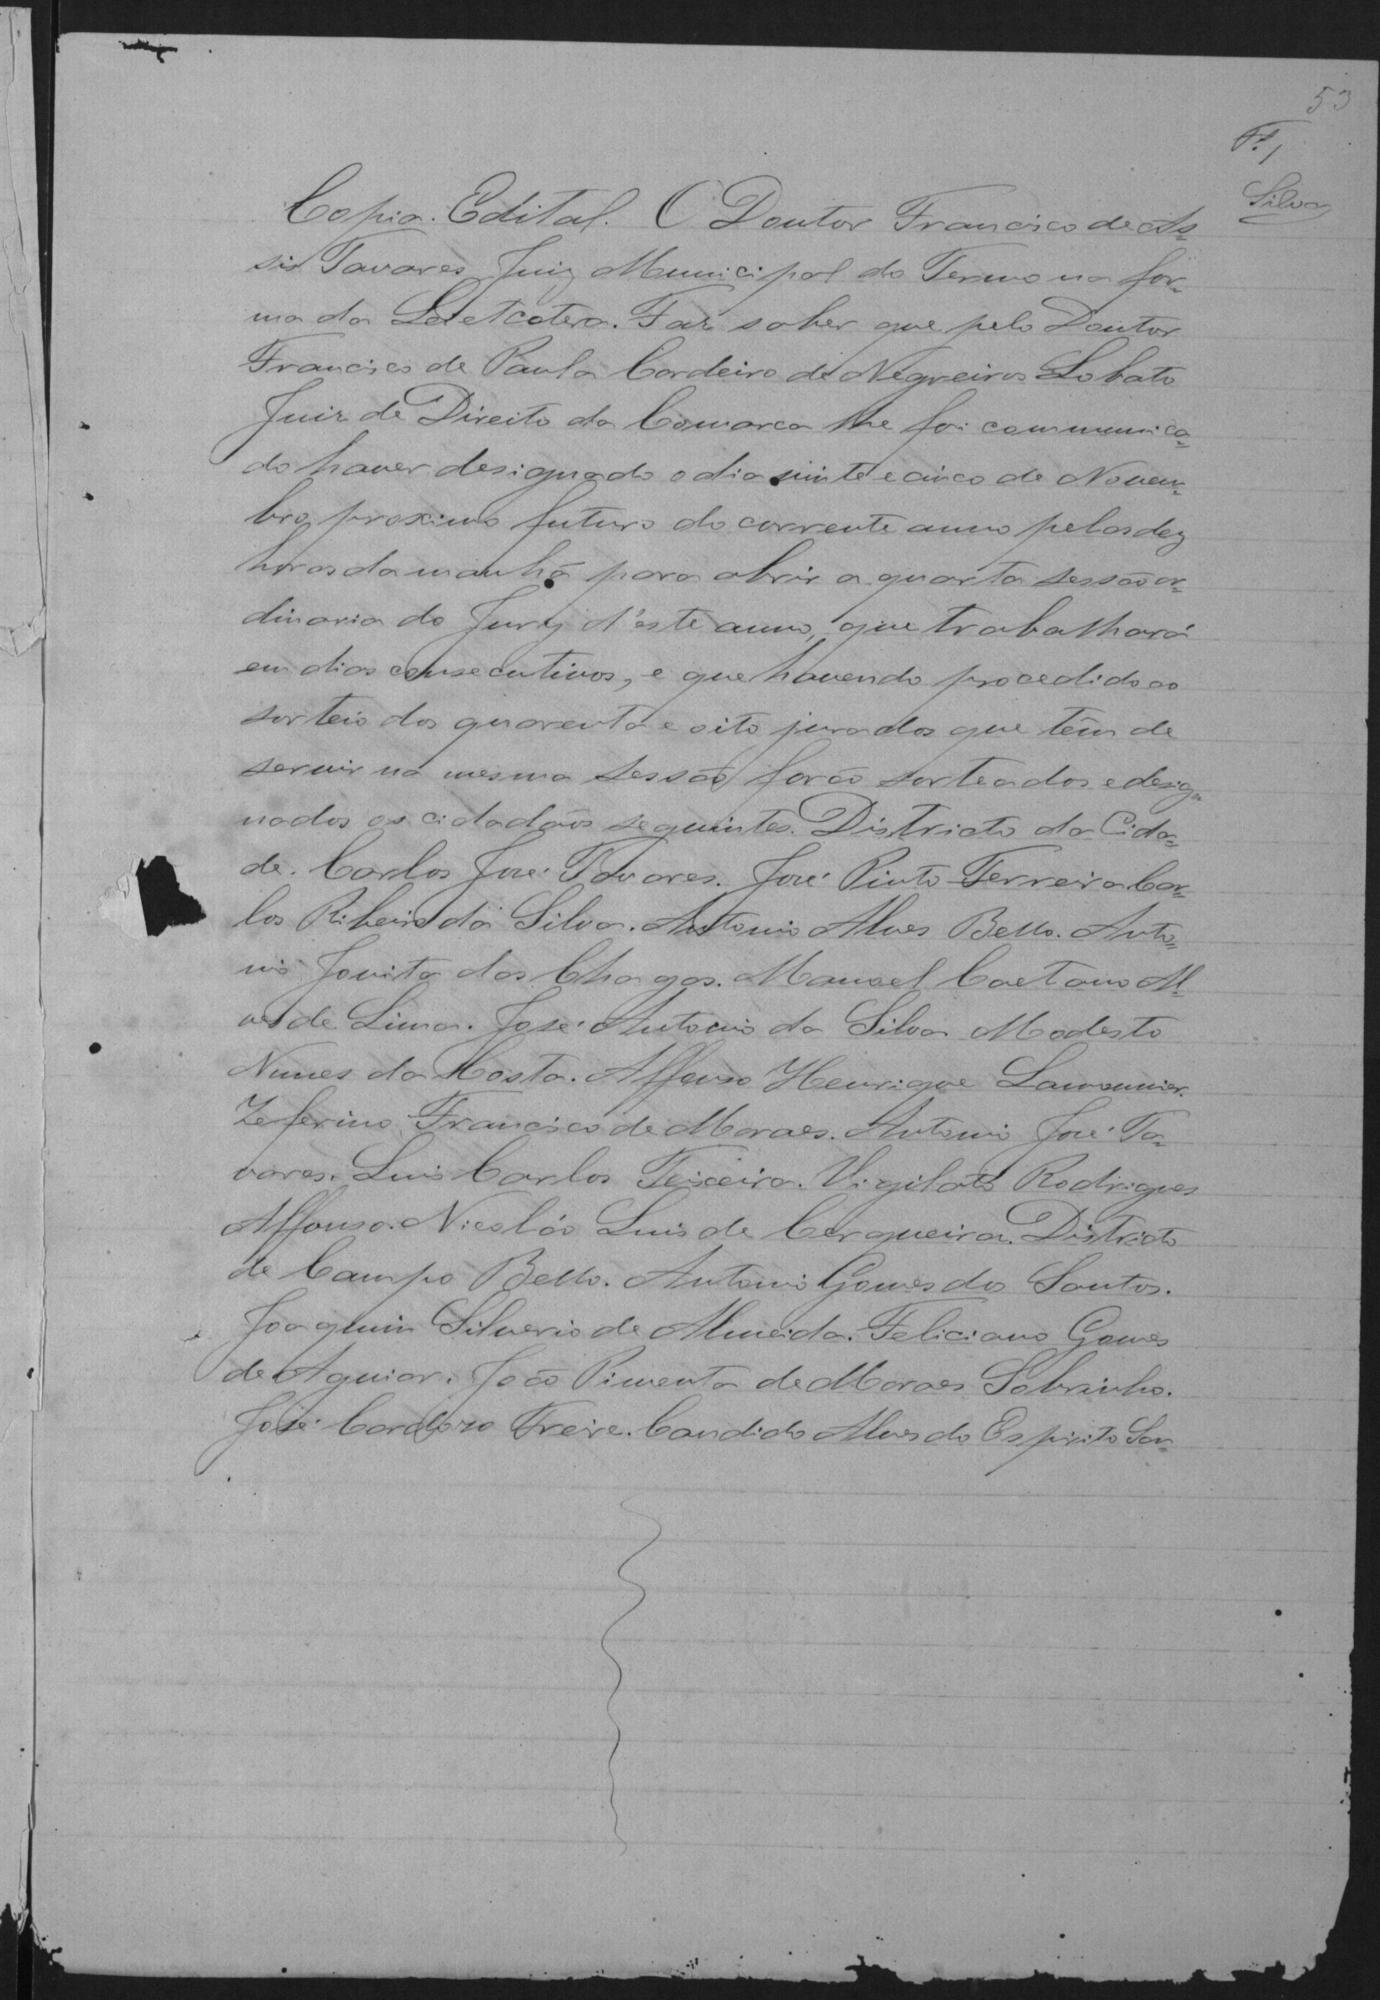 53
Fl. 1
Silva
Copia. Edital. O Doutor Francisco de As=
sis Tavares Juiz Municipal do Termo na for=
ma da Lei etcetera. Faz saber que pelo Doutor
Francisco de Paula Cordeiro de Negreiros Lobato
Juiz de Direito da Comarca lhe foi communica=
do haver designado o dia vinte e cinco de Novem=
bro proximo futuro do corrente anno pelas dez
horas da manhã para abrir a quarta sessão or=
dinaria do Jury d'este anno, que trabalhará
em dias consecutivos, e que havendo procedido ao
sorteio dos quarenta e oito jurados que têm de
servir na mesma sessão forão sorteados e desig=
nados os cidadãos seguintes. Districto da Cida=
de. Carlos José Tavares. José Pinto Ferreira Car=
los Ribeiro da Silva. Antonio Alves Bello. Anto=
nio Jovita das Chagas. Manoel Caetano Al=
ves de Lima. José Antonio da Silva Modesto
Nunes da Costa. Affonso Henrique Lamounier.
Zeferino Francisco de Moraes. Antonio José Ta=
vares. Luis Carlos Teixeira. Vigilato Rodrigues
Affonso. Nicoláo Luis de Cerqueira. Districto
de Campo Bello. Antonio Gomes dos Santos.
Joaquim Silverio de Almeida. Feliciano Gomes
de Aguiar. João Pimenta de Moraes Sobrinho.
José Cardozo Freire. Candido Alves do Espirito San=